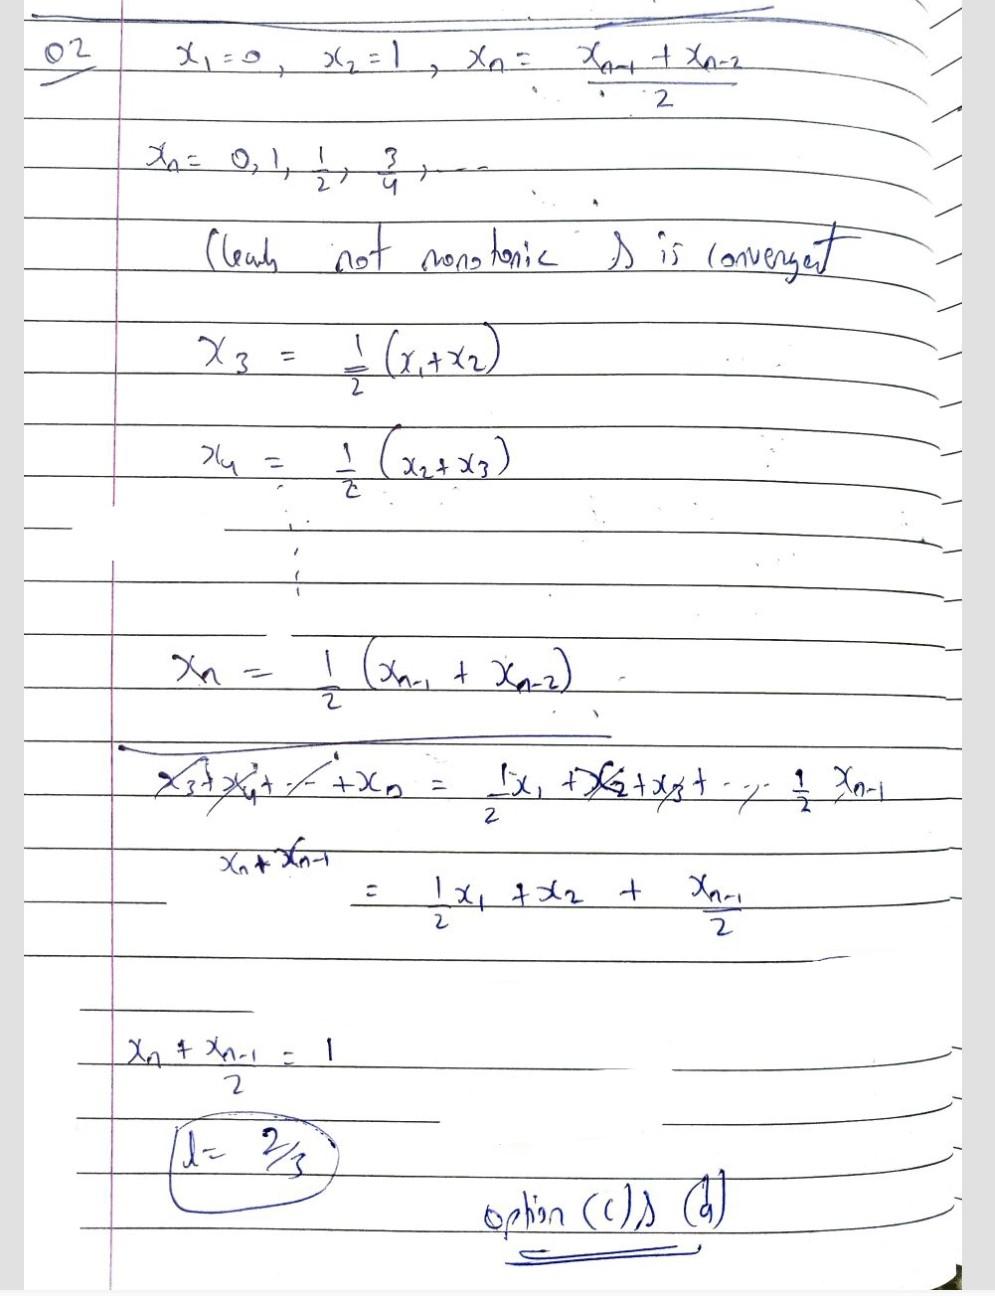 02 x₁=0, x₂=1, xₙ= (xₙ₋₁ + xₙ₋₂)/2
xₙ= 0, 1, 1/2, 3/4, ....
Clearly not monotonic & is convergent
x₃ = 1/2 (x₁+x₂)
x₄ = 1/2 (x₂+x₃)
xₙ = 1/2 (xₙ₋₁ + xₙ₋₂)
x₃+x₄+ --- +xₙ = 1/2 x₁ +x₂+x₃+ ---- 1/2 xₙ₋₁
xₙ + xₙ₋₁
= 1/2 x₁ + x₂ + xₙ₋₁/2
xₙ + xₙ₋₁/2 = 1
l= 2/3
option (c) & (d)